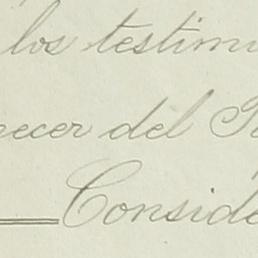 los testim
ecer del
Conside